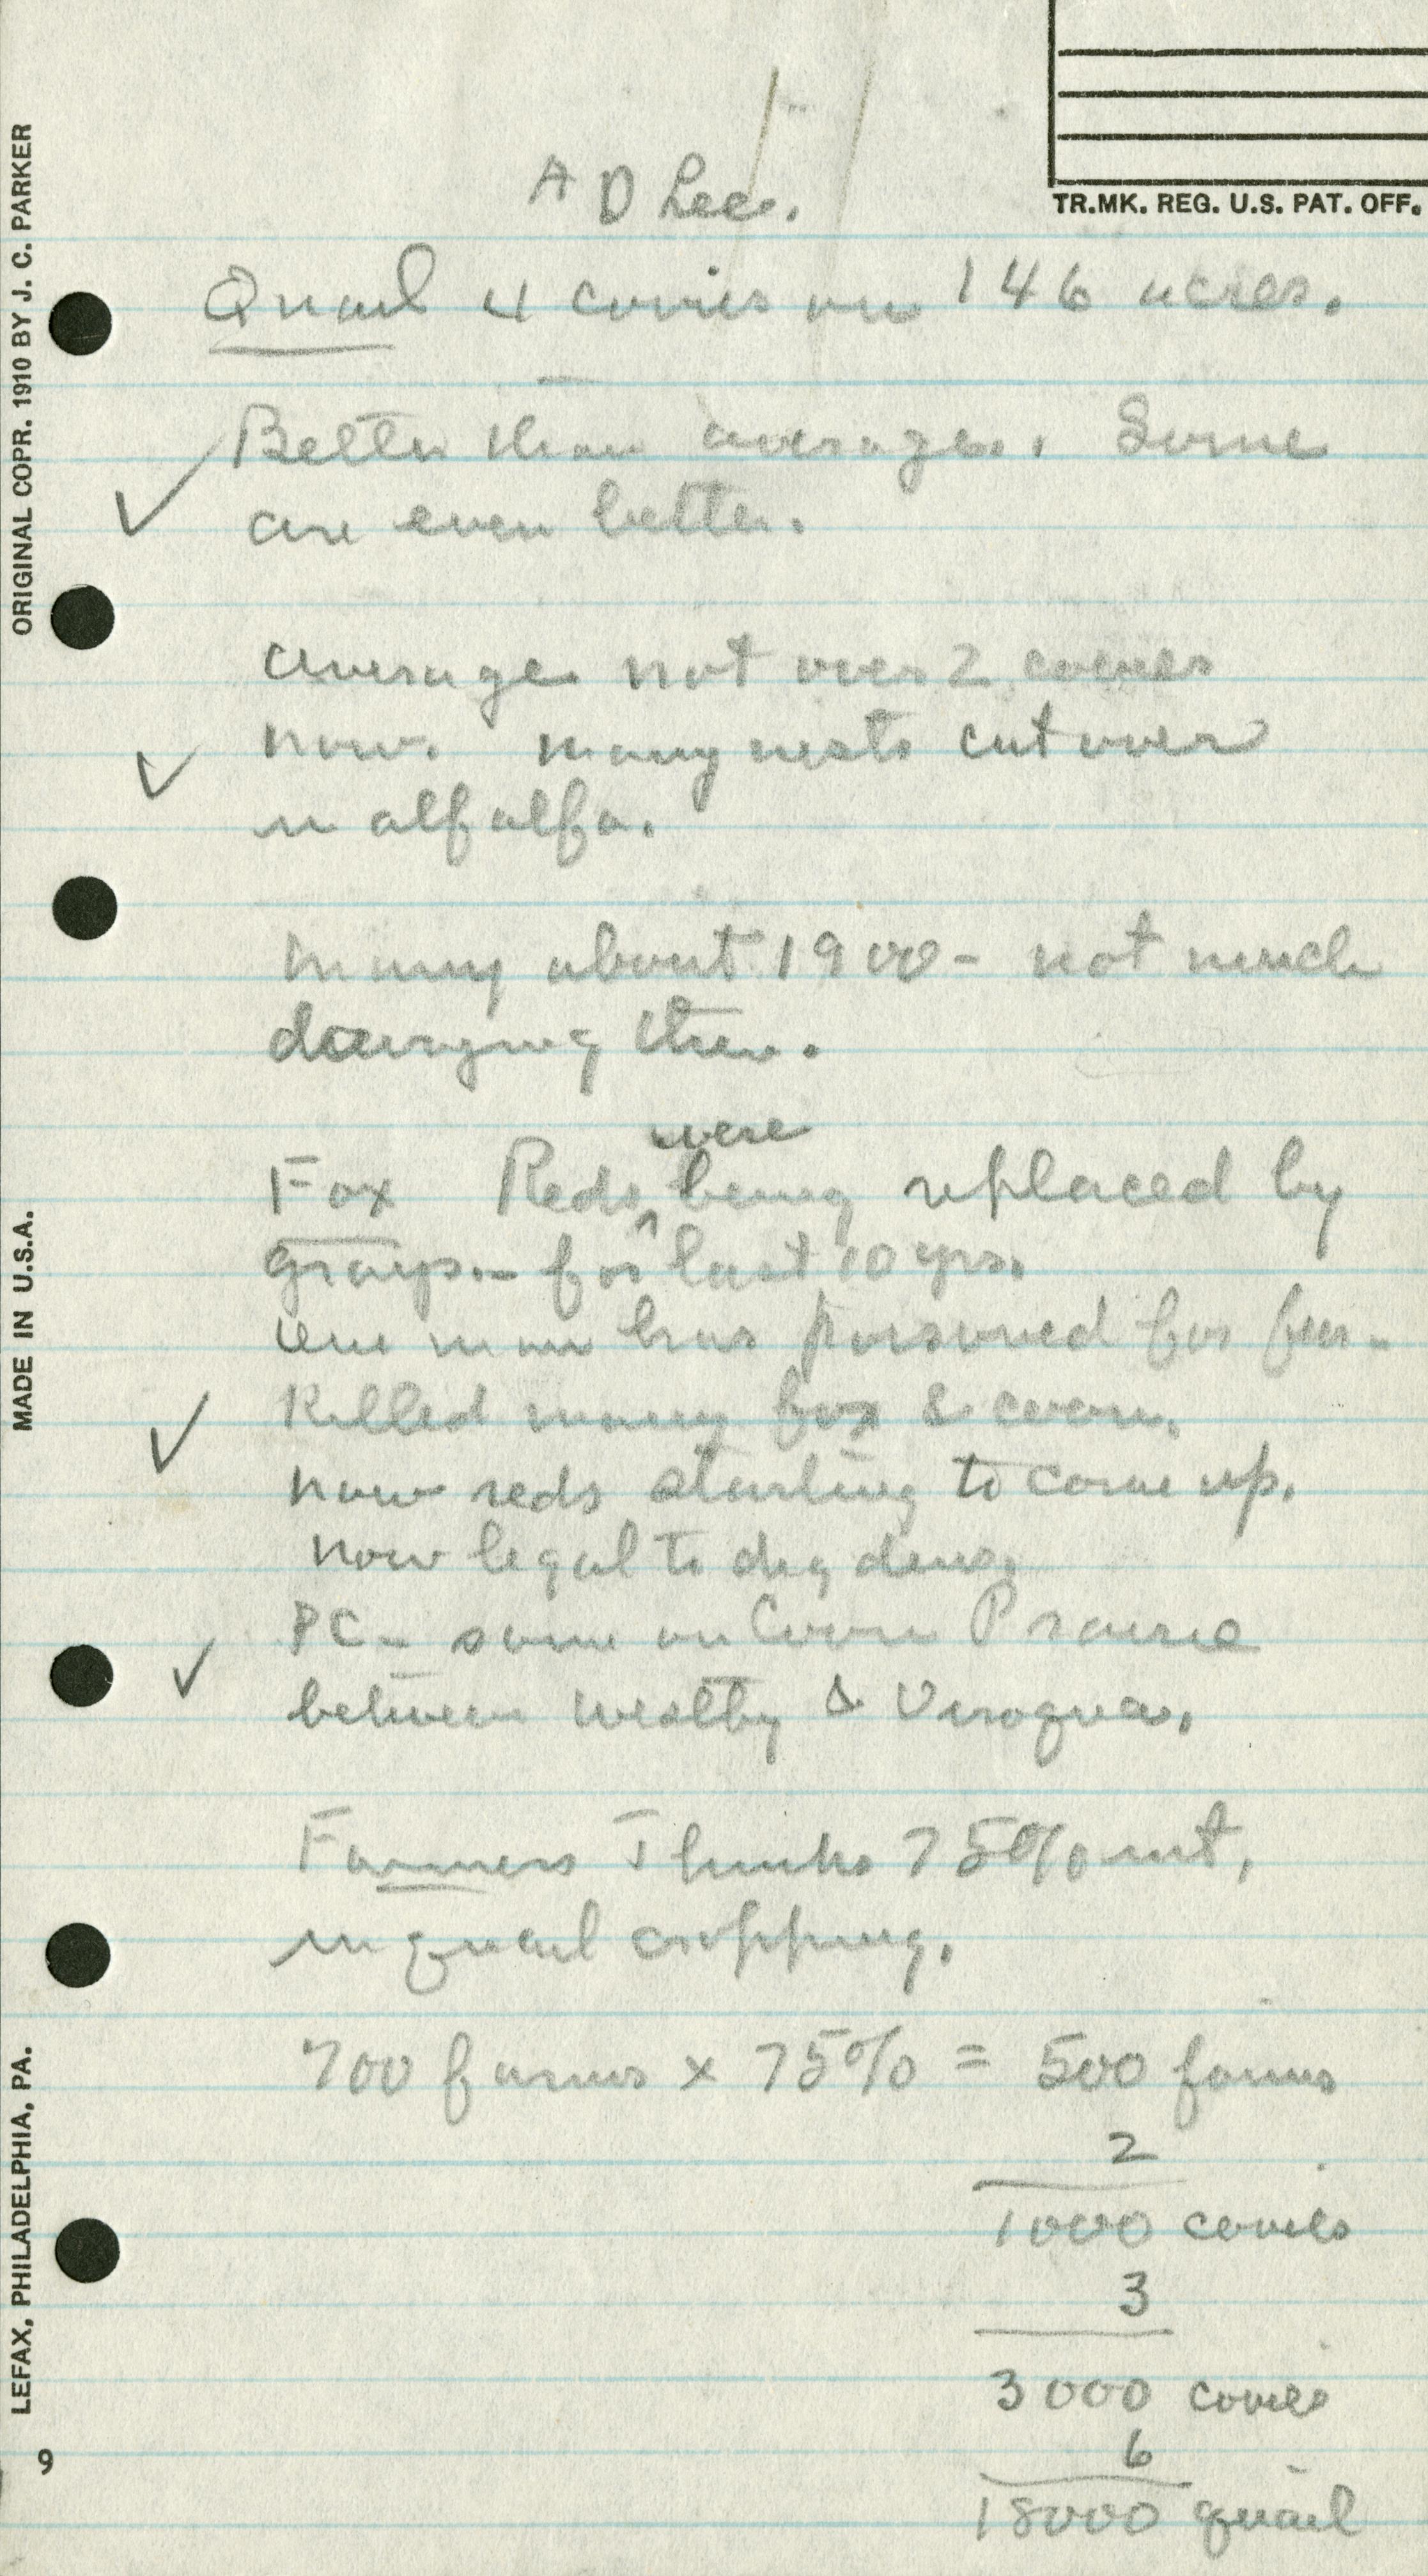 TR.MK. REG. U.S. PAT. OFF.
ORIGINAL COPR. 1910 BY J. C. PARKER
MADE IN U.S.A.
LEFAX, PHILADELPHIA, PA.
9
A D Lee.
Quail 4 covies on 146 acres.
Better than average. Some
are even better.
average not over 2 covies
now. many nests cut over
in alfalfa.
Many about 1900 - not much
dairying then.
were
Fox Reds ^ being replaced by
grays. - for last 10 yrs.
One man has poisoned for fur -
Killed many fox & coon.
now reds starting to come up.
Now legal to dig dens.
PC - some on Coon Prairie
between Westby & Viroqua.
Farmers Thinks 75% int.
in quail cropping.
700 farms x 75% = 500 farms
2
1000 covies
3
3000 covies
6
18000 quail